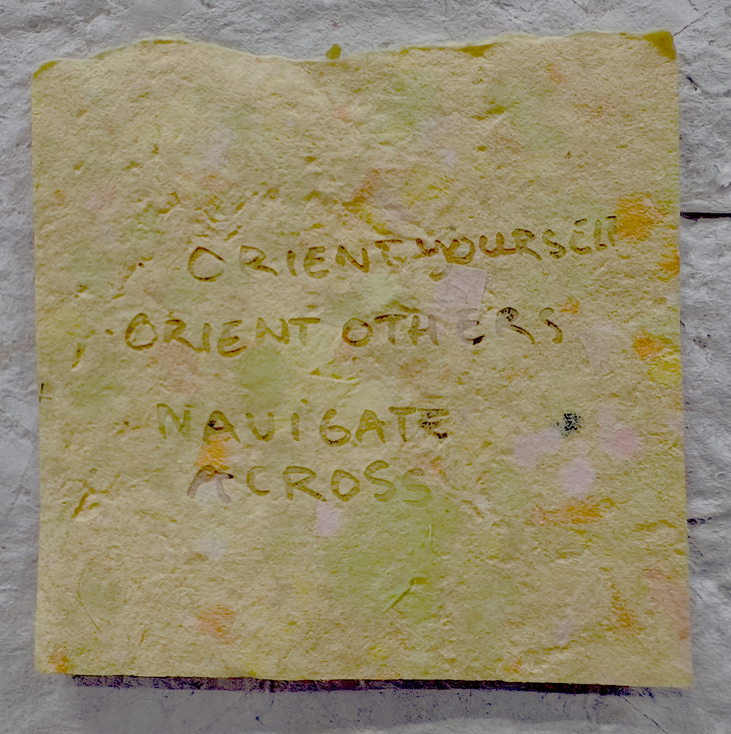 ORIENT YOURSELF
ORIENT OTHERS
NAVIGATE
ACROSS